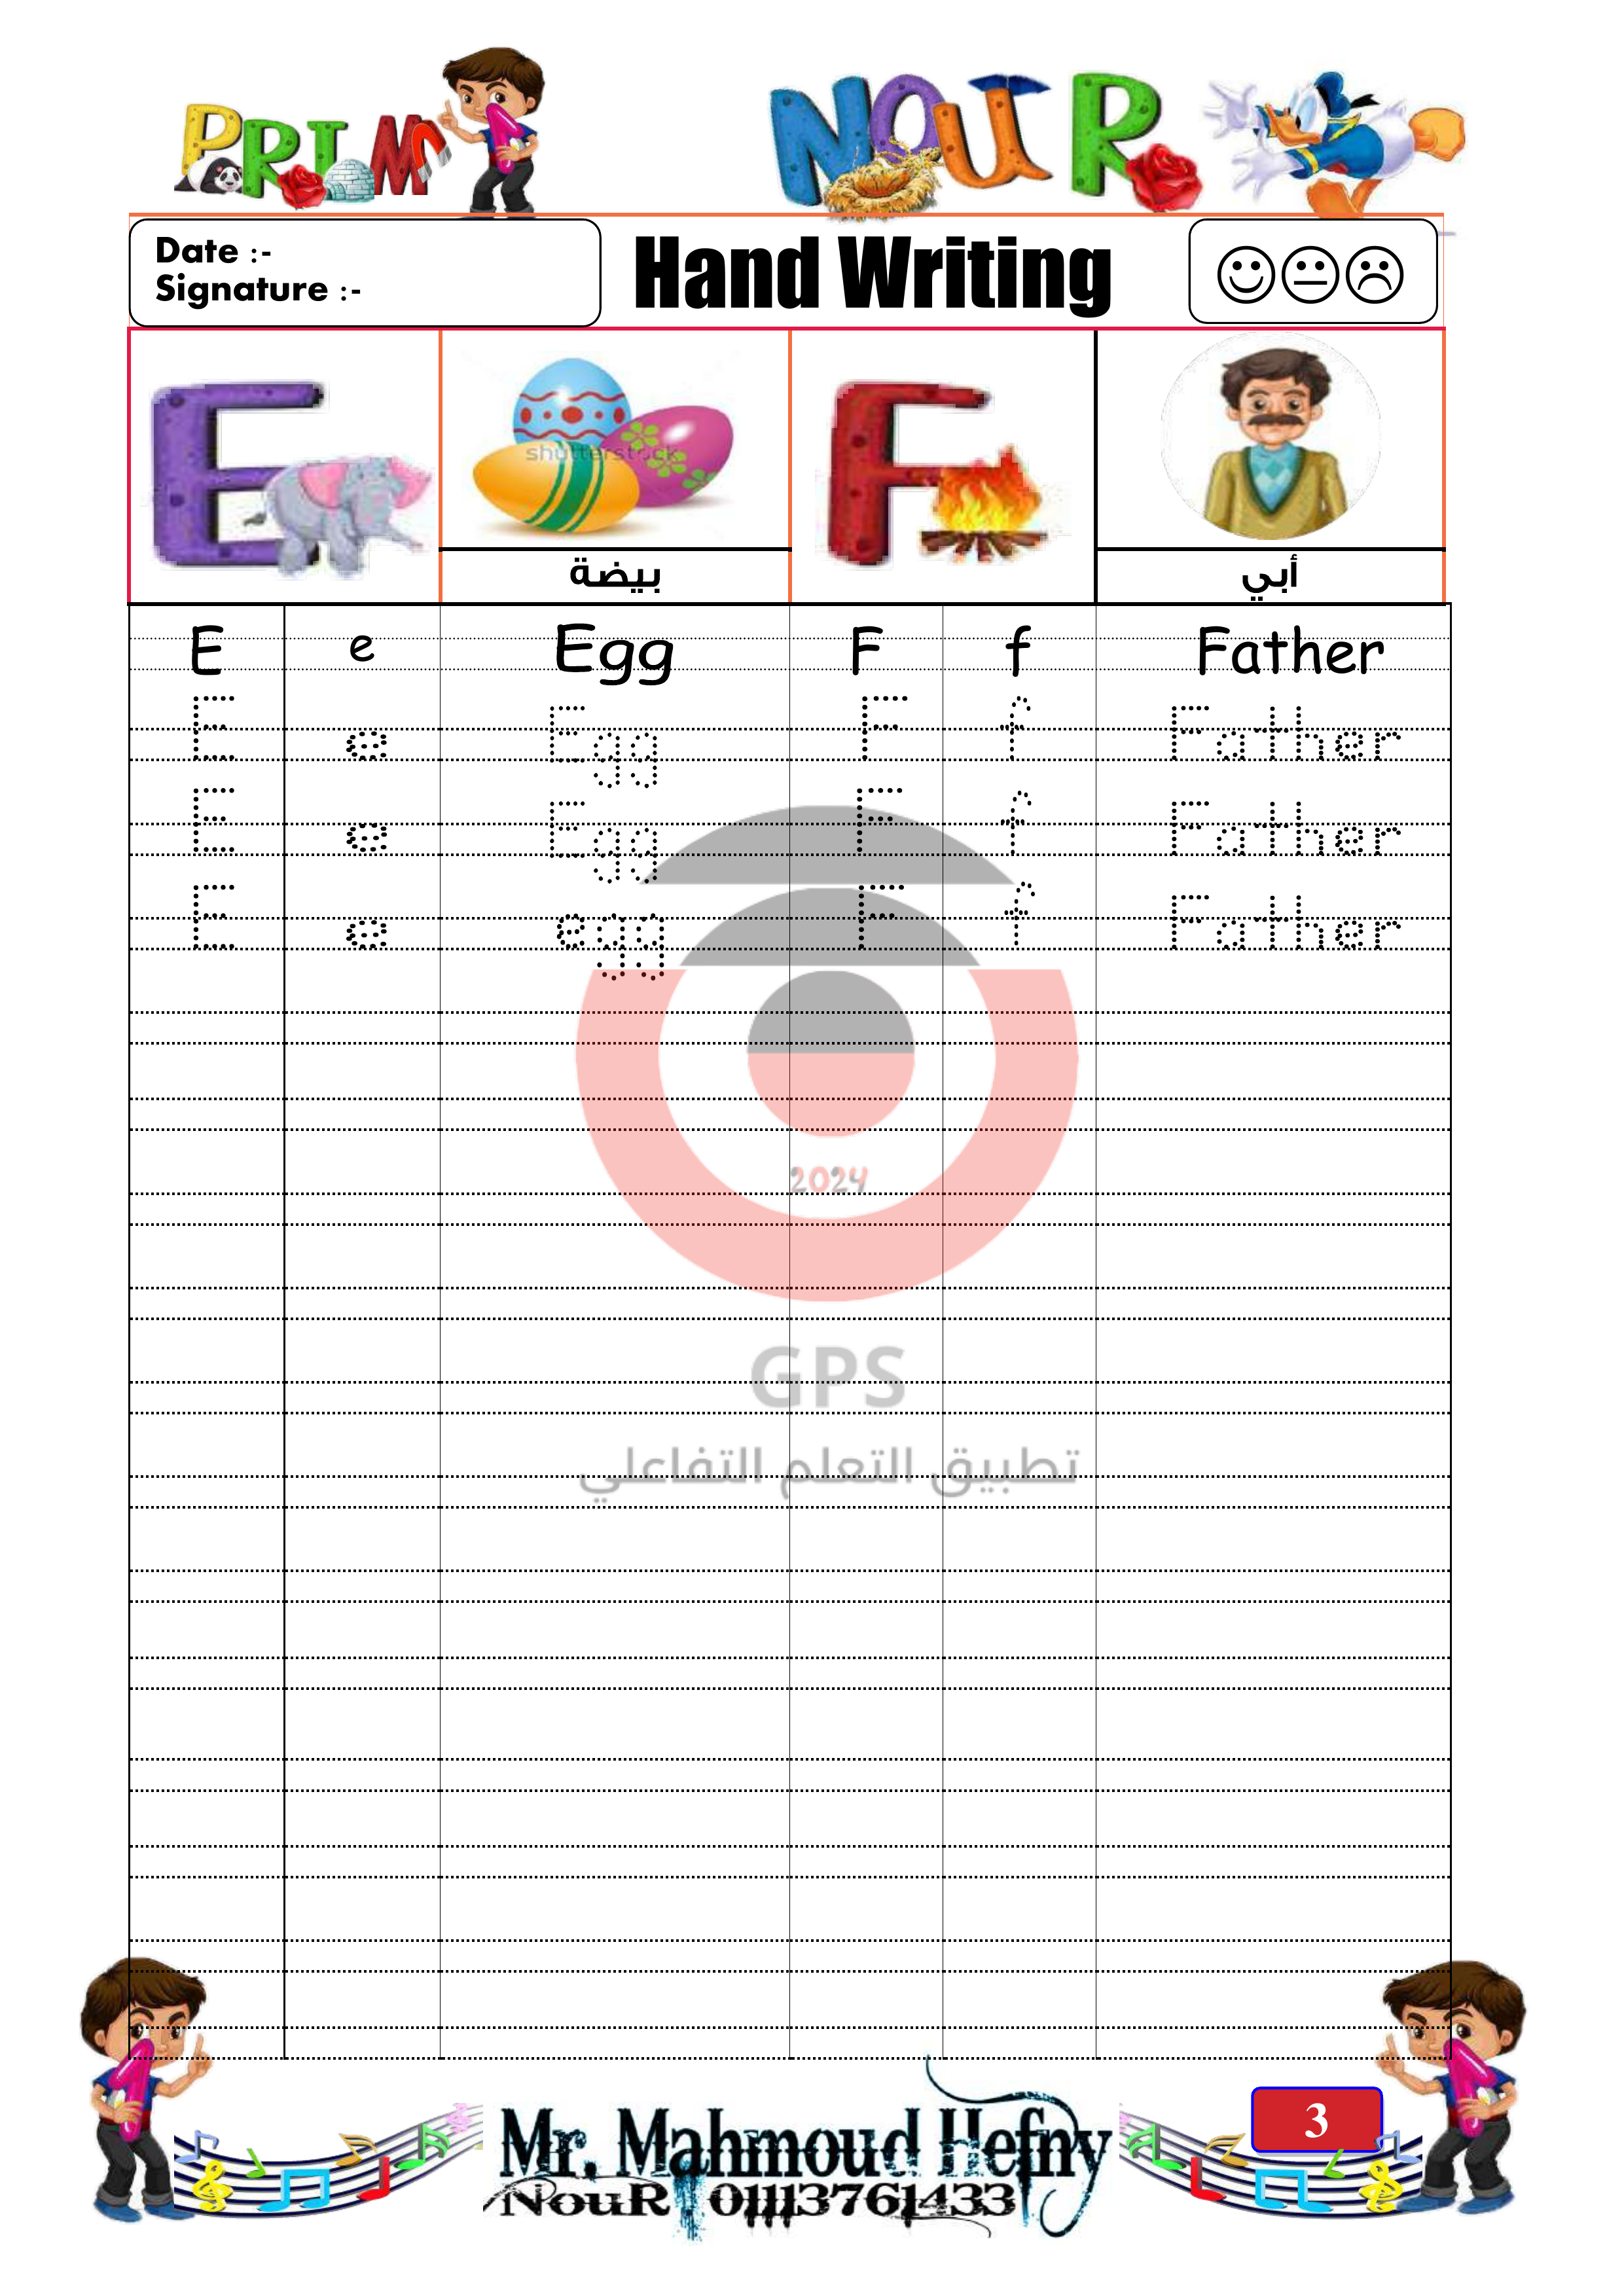 PRIM 1
NOUR
Date :-
Signature :-
Hand Writing
E
F
shutterstock
بيضة
أبي
E e Egg F f Father
E e Egg F f Father
E e Egg F f Father
E e egg F f Father
2024
GPS
تطبيق التعلم التفاعلي
3
Mr. Mahmoud Hefny
NouR : 01113761433